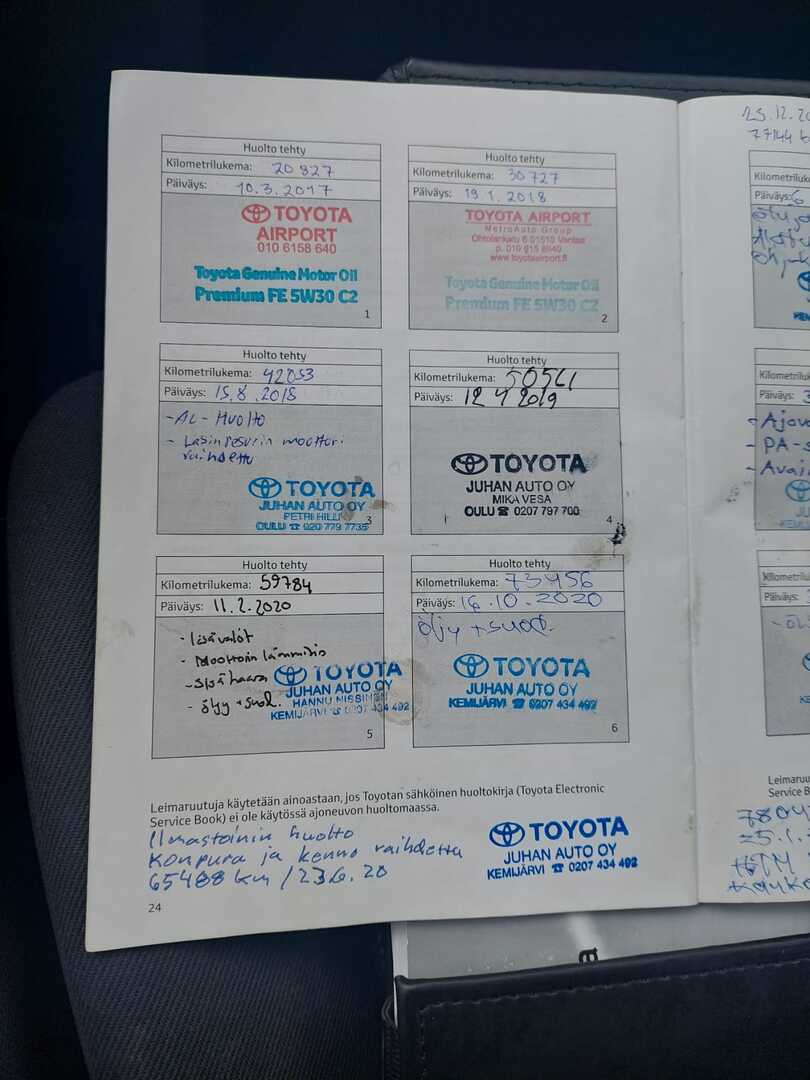 Huolto tehty
Kilometrilukema: 20 827
Päiväys: 10.3.2017
TOYOTA
AIRPORT
010 6158 640
Toyota Genuine Motor Oil
Premium FE 5W30 C2
1
Huolto tehty
Kilometrilukema: 30 727
Päiväys: 19.1.2018
TOYOTA AIRPORT
MetroAuto Group
Ohtolankatu 6 01510 Vantaa
p. 010 615 8640
www.toyotaairport.fi
Toyota Genuine Motor Oil
Premium FE 5W30 C2
2
Huolto tehty
Kilometrilukema: 42053
Päiväys: 15.8.2018
- AL - Huolto
- Lasinpesurin moottori
vaihdettu
TOYOTA
JUHAN AUTO OY
PETRI HILLI
OULU ☎ 020 779 7735
3
Huolto tehty
Kilometrilukema:
Päiväys: 12 4 2019
TOYOTA
JUHAN AUTO OY
MIKA VESA
OULU ☎ 0207 797 700
4
Huolto tehty
Kilometrilukema: 59784
Päiväys: 11.2.2020
- lisävalot
- Moottorin lämmitin
- Sisähaara
- öljy + suod.
TOYOTA
JUHAN AUTO OY
HANNU NISSINEN
KEMIJÄRVI ☎ 0207 434 492
5
Huolto tehty
Kilometrilukema: 73456
Päiväys: 16.10.2020
Öljy + suod.
TOYOTA
JUHAN AUTO OY
KEMIJÄRVI ☎ 0207 434 492
6
Leimaruutuja käytetään ainoastaan, jos Toyotan sähköinen huoltokirja (Toyota Electronic
Service Book) ei ole käytössä ajoneuvon huoltomaassa.
Ilmastoinin huolto
Konpura ja kenno vaihdettu
65488 km / 23.6.20
TOYOTA
JUHAN AUTO OY
KEMIJÄRVI ☎ 0207 434 492
24
77144
Päiväys:
- PA-
Päiväys:
Service B